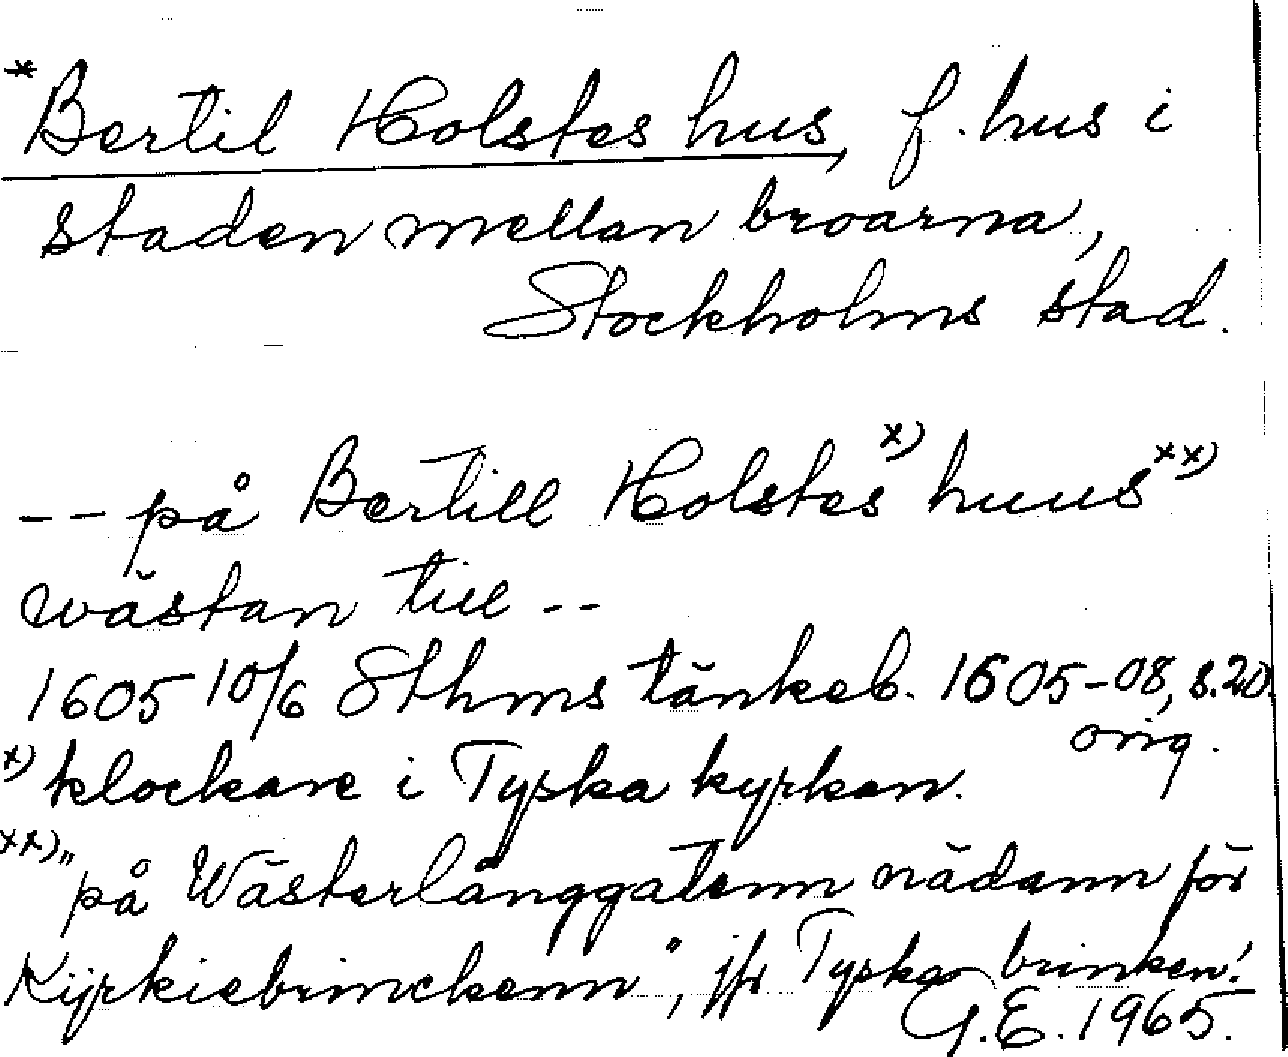 *Bertil Holstes hus, f. hus i
staden mellan broarna,
Stockholms stad.
-- på Bertill Holstes x) huus xx)
wästan till --
1605 10/6 Sthms tänkeb. 1605-08, s. 20
orig.
x) klockare i Tyska kyrkan.
xx) "på Wästerlånggatenn nädann för
Kijrkiebrinckenn", jfr Tyska brinken!
G.E. 1965.